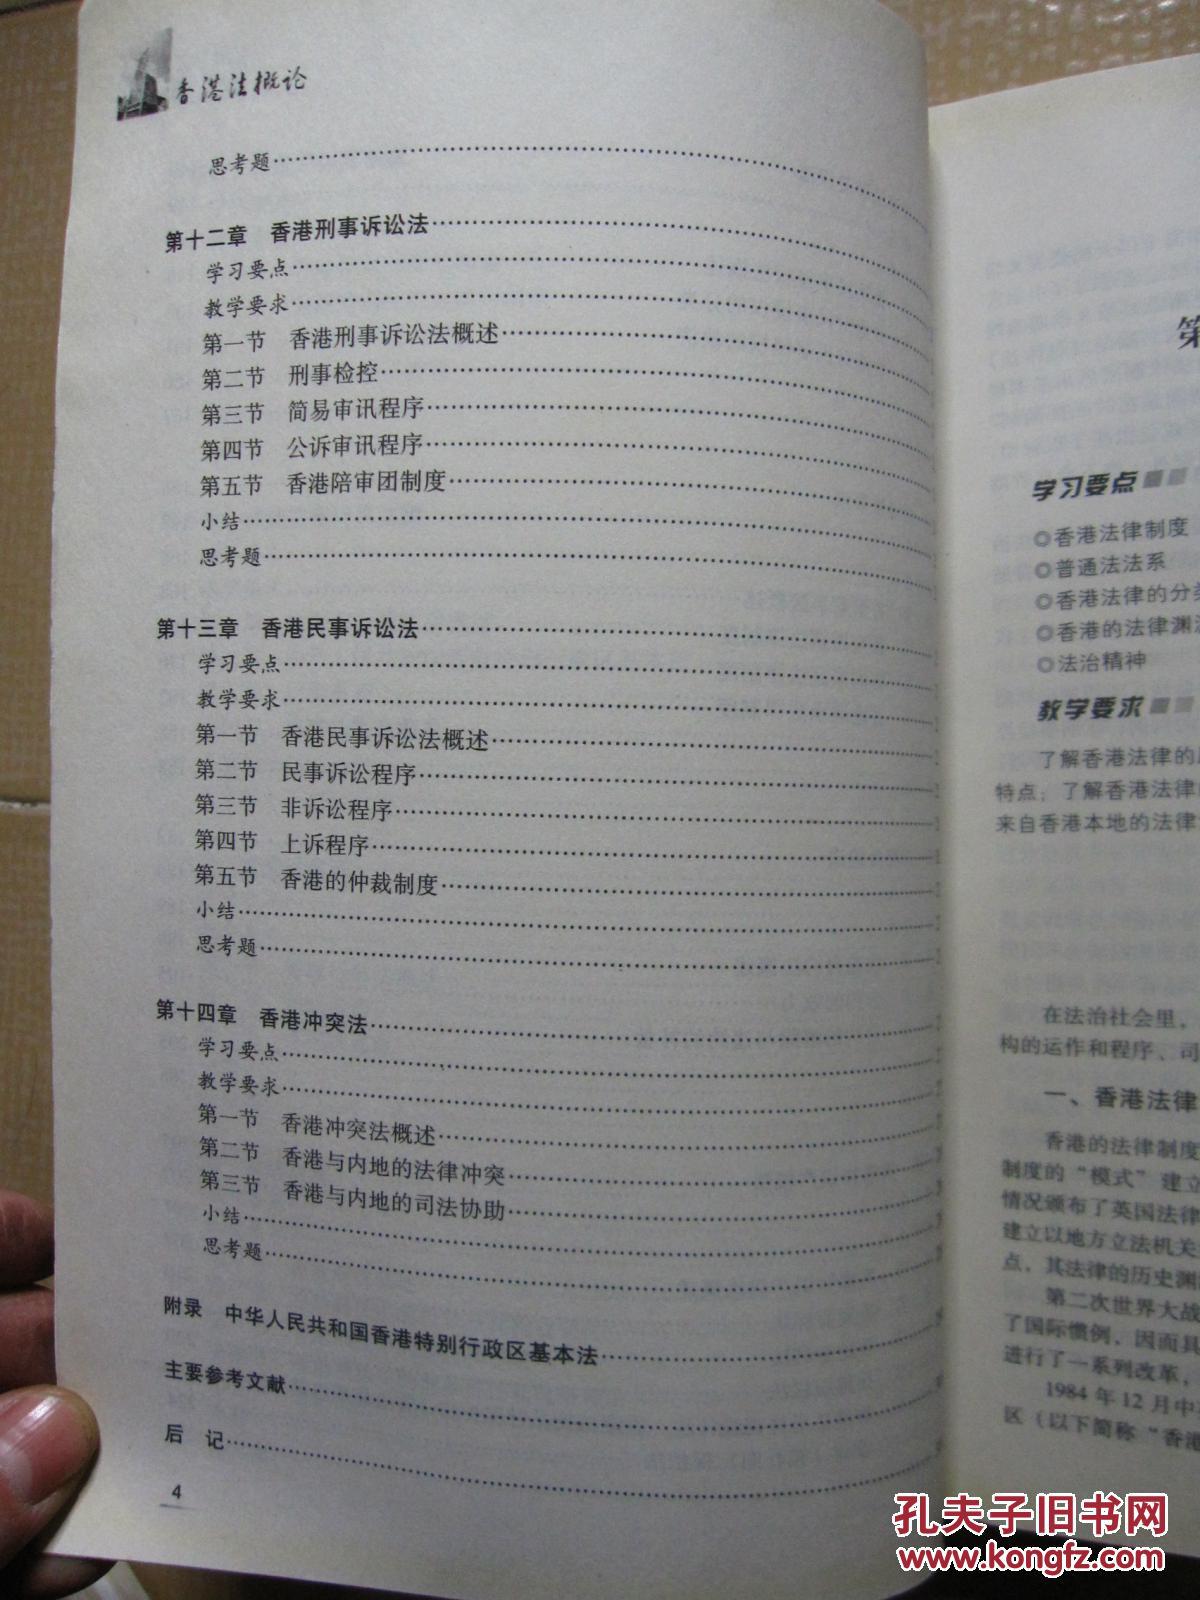 香港法概论
思考题
第十二章 香港刑事诉讼法
学习要点
教学要求
第一节 香港刑事诉讼法概述
第二节 刑事检控
第三节 简易审讯程序
第四节 公诉审讯程序
第五节 香港陪审团制度
小结
思考题
第十三章 香港民事诉讼法
学习要点
教学要求
第一节 香港民事诉讼法概述
第二节 民事诉讼程序
第三节 非诉讼程序
第四节 上诉程序
第五节 香港的仲裁制度
小结
思考题
第十四章 香港冲突法
学习要点
教学要求
第一节 香港冲突法概述
第二节 香港与内地的法律冲突
第三节 香港与内地的司法协助
小结
思考题
附录 中华人民共和国香港特别行政区基本法
主要参考文献
后 记
4
第
学习要点
◎香港法律制度
◎普通法法系
◎香港法律的分类
◎香港的法律渊
◎法治精神
教学要求
了解香港法律的
特点；了解香港法律
来自香港本地的法律
在法治社会里，
构的运作和程序、司
一、香港法律
香港的法律制度
制度的“模式”建立
情况颁布了英国法律
建立以地方立法机关
点，其法律的历史渊
第二次世界大战
了国际惯例，因而具
进行了一系列改革，
1984 年 12 月中
区（以下简称“香港
孔夫子旧书网
www.kongfz.com